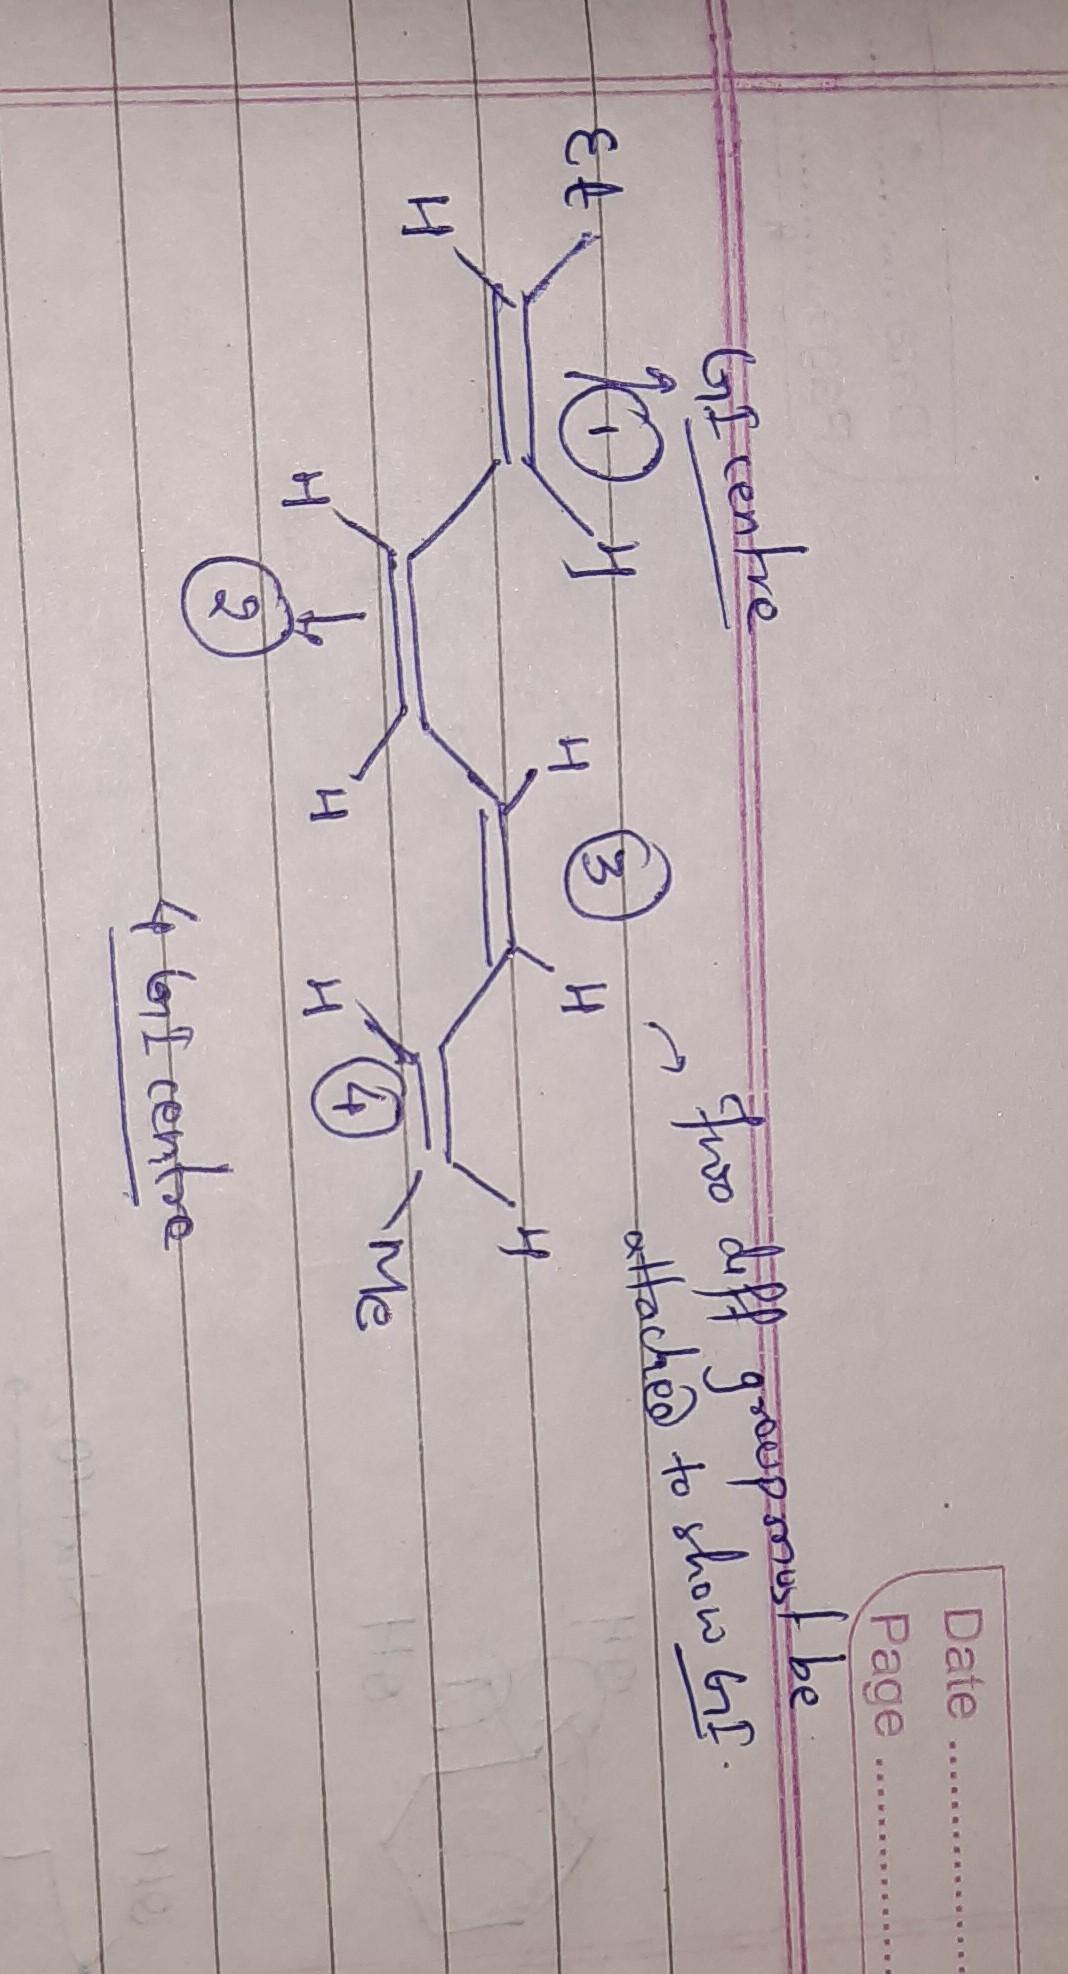 Date ..................
Page ..................
GI centre
→ Two diff group must be
attached to show GI.
1
3
Et
H
H
H
H
H
H
H
Me
2
4
4 GI centre